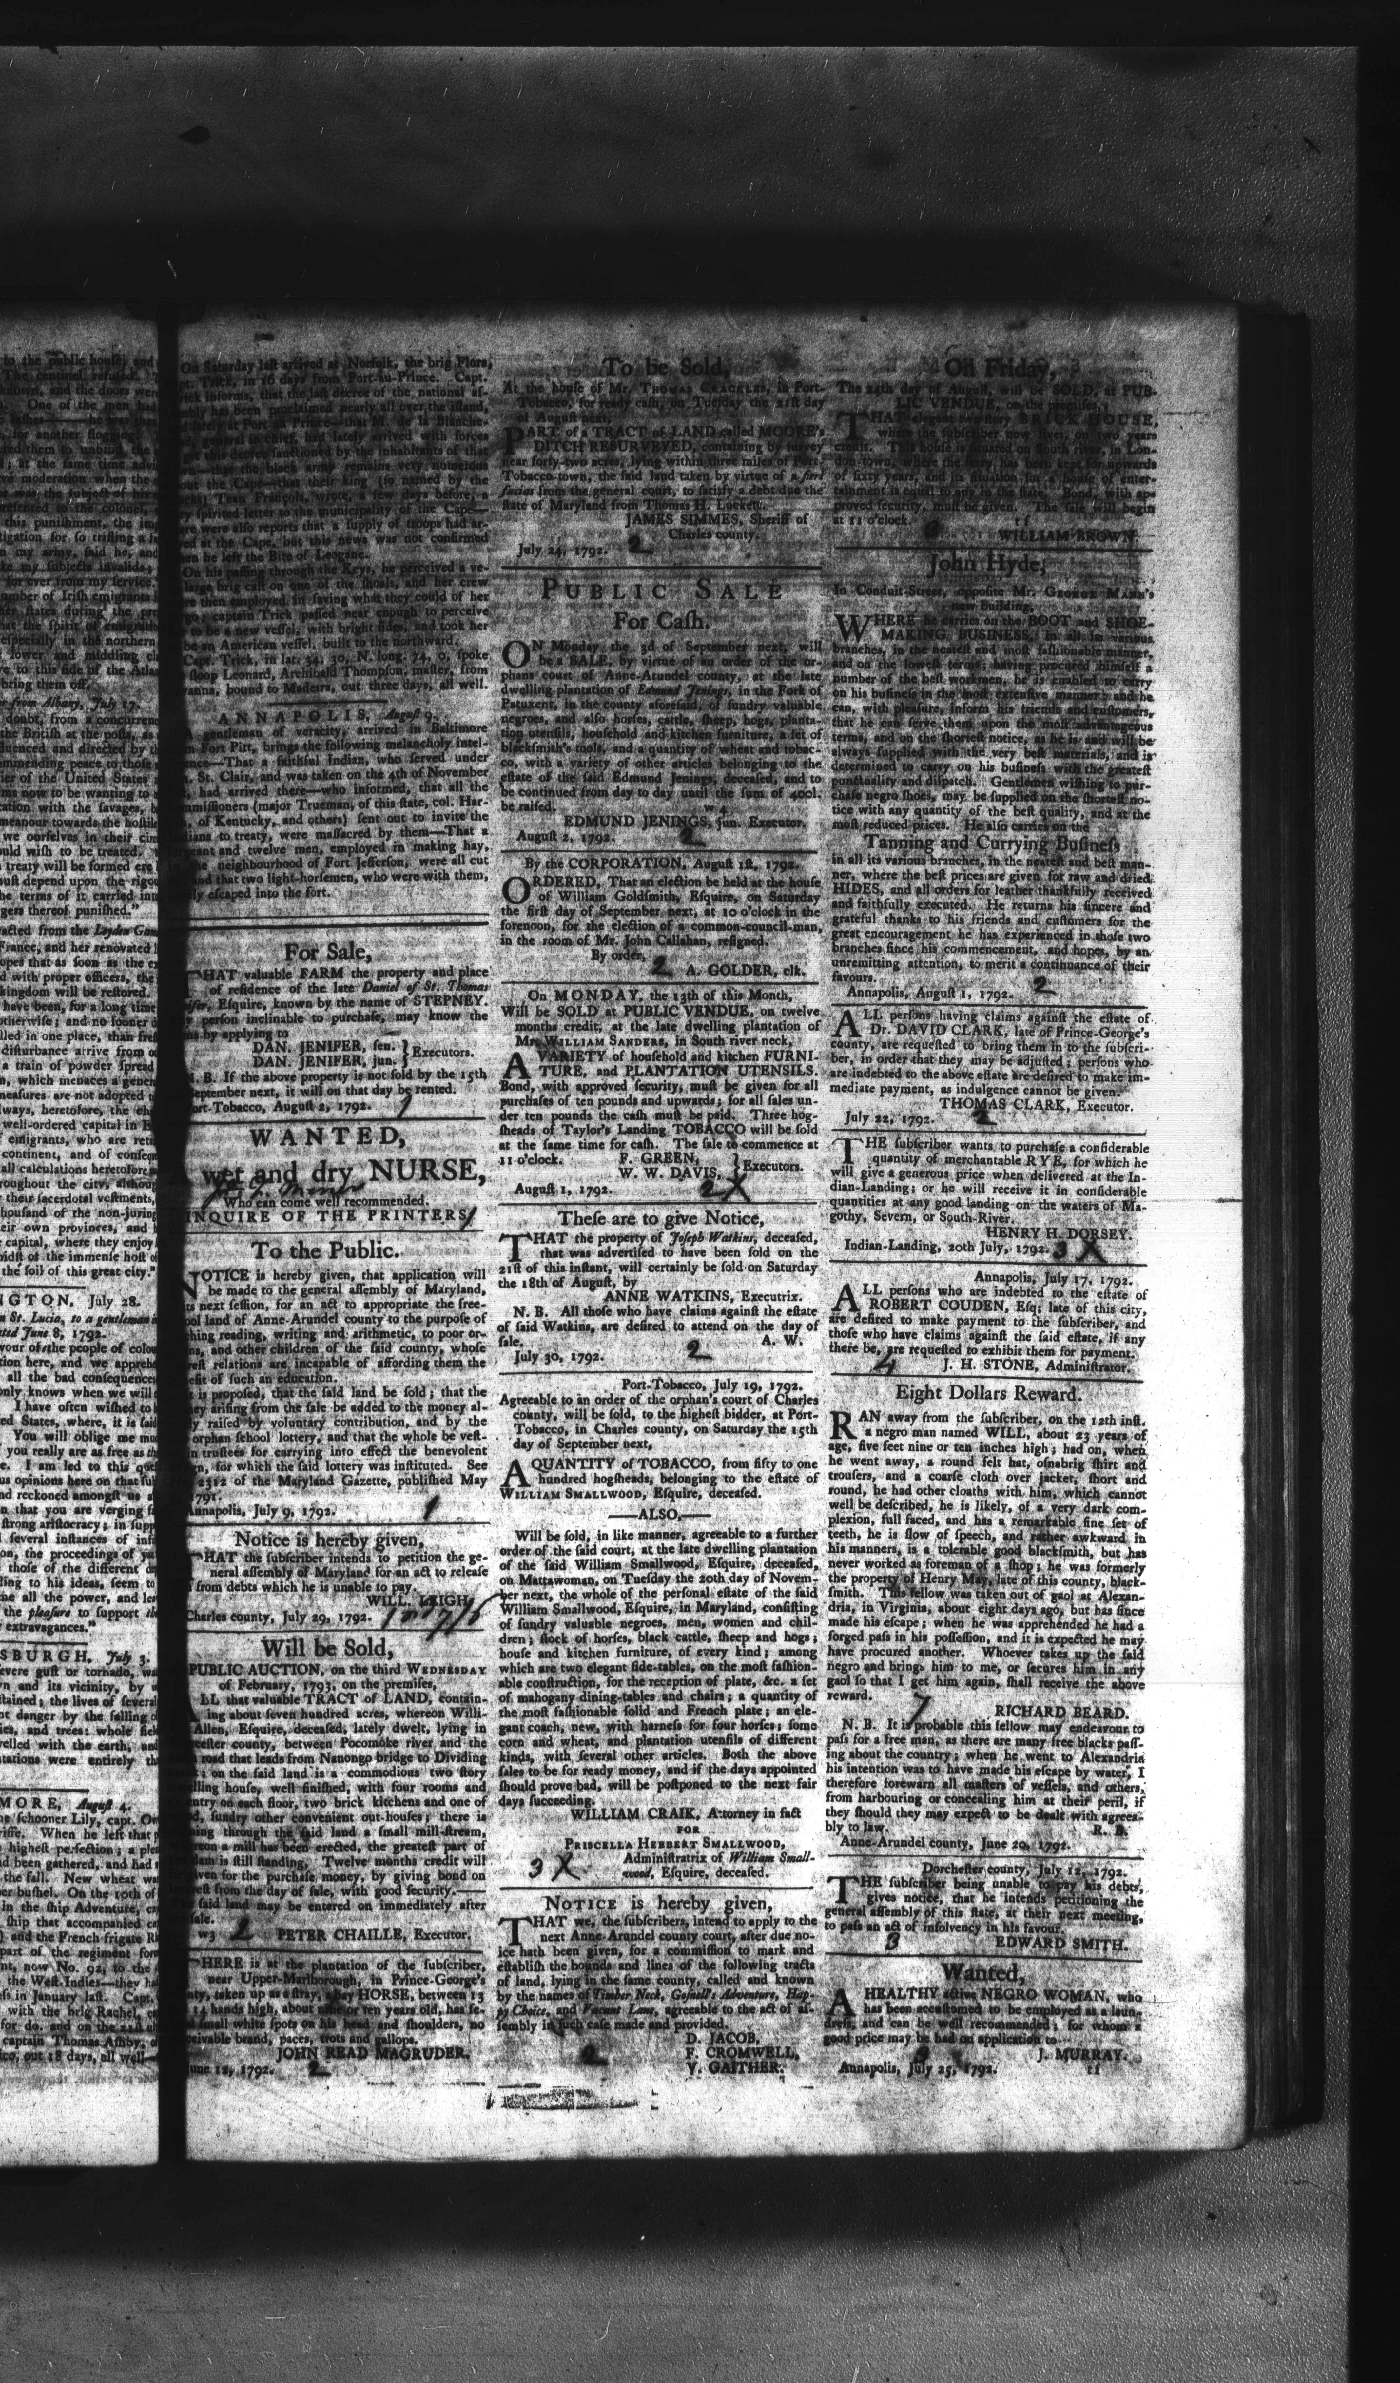 to the public house; and
The centinel refused,
and the doors were
One of the men had
for another flogging.
at the same time
moderation when the
presented to the colonel,
this punishment, the
for so trifling a
in my army, said he, and
my subjects invalids;
for ever from my service.
number of Irish emigrants
states during the
that the spirit of emigration
especially in the northern
lower and middling
to this side of the Atlan-
bring them off.
from Albany, July 17.
doubt, from a
the British at the posts, as
and directed by
peace to those
of the United States
now to be wanting to
with the savages,
towards the hostile
we ourselves in their
wish to be treated.
treaty will be formed ere
must depend upon the rigour
the terms of it carried into
thereof punished."
extracted from the Leyden
France, and her renovated
hopes that as soon as the
with proper officers, the
kingdom will be restored.
have been, for a long time
otherwise; and no sooner
in one place, than
disturbance arrive from
a train of powder spread
which menaces a
measures are not adopted
always, heretofore, the
well-ordered capital in
emigrants, who are
continent, and of
all calculations heretofore
throughout the city, although
their sacerdotal vestments,
thousand of the non-juring
their own provinces, and
capital, where they enjoy
midst of the immense host
the soil of this great city."
INGTON, July 28.
St. Lucia, to a gentleman
dated June 8, 1792.
favour of the people of colour
here, and we
all the bad consequences
only knows when we will
I have often wished to
United States, where, it is said
You will oblige me
you really are as free as
I am led to this
opinions here on that
and reckoned amongst us
that you are verging
strong aristocracy; in
several instances of
the proceedings of
those of the different
to his ideas, seem to
all the power, and
the pleasure to support
extravagances."
SBURGH, July 3.
severe gust or tornado,
and its vicinity, by
the lives of several
danger by the falling
and trees: whole
with the earth, and
were entirely
MORE, August 4.
schooner Lily, capt.
When he left that
highest perfection; a
been gathered, and had
the fall. New wheat
per bushel. On the 19th of
in the ship Adventure,
ship that accompanied
and the French frigate
part of the regiment
now No. 92, to the
the West-Indies—they
in January last. Capt.
with the brig Rachel,
for do. and on the 21st
captain Thomas Ashby,
out 18 days, all well.
On Saturday last arrived at Norfolk, the brig Flora,
Trick, in 16 days from Port-au-Prince. Capt.
informs, that the last decree of the national as-
has been proclaimed nearly all over the island,
lately at Port-au-Prince—that M. de la Blanche-
general in chief, had lately arrived with forces
this decree sanctioned by the inhabitants of that
the black army remains very numerous
the Cape—that their king (so named by the
Jean François, wrote, a few days before, a
spirited letter to the municipality of the Cape—
were also reports that a supply of troops had ar-
at the Cape, but this news was not confirmed
he left the Bite of Leogane.
On his passing through the Keys, he perceived a ve-
large brig cast on one of the shoals, and her crew
then employed, in saving what they could of her
captain Trick passed near enough to perceive
to be a new vessel, with bright sides, and took her
be an American vessel, built to the northward.
Capt. Trick, in lat. 34, 30, N. long. 74, 0, spoke
sloop Leonard, Archibald Thompson, master, from
bound to Madeira, out three days, all well.
ANNAPOLIS, August 9.
gentleman of veracity, arrived in Baltimore
Fort Pitt, brings the following melancholy intel-
—That a faithful Indian, who served under
St. Clair, and was taken on the 4th of November
had arrived there—who informed, that all the
(major Trueman, of this state, col. Har-
of Kentucky, and others) sent out to invite the
to treaty, were massacred by them—That a
and twelve men, employed in making hay,
neighbourhood of Fort Jefferson, were all cut
and that two light-horsemen, who were with them,
escaped into the fort.
For Sale,
THAT valuable FARM the property and place
of residence of the late Daniel of St. Thomas
Esquire, known by the name of STEPNEY.
person inclinable to purchase, may know the
by applying to
DAN. JENIFER, sen. } Executors.
DAN. JENIFER, jun.
N. B. If the above property is not sold by the 15th
September next, it will on that day be rented.
Port-Tobacco, August 2, 1792.
WANTED,
A wet and dry NURSE,
Who can come well recommended.
INQUIRE OF THE PRINTERS.
To the Public.
NOTICE is hereby given, that application will
be made to the general assembly of Maryland,
next session, for an act to appropriate the free-
land of Anne-Arundel county to the purpose of
reading, writing and arithmetic, to poor or-
and other children of the said county, whose
relations are incapable of affording them the
of such an education.
is proposed, that the said land be sold; that the
arising from the sale be added to the money al-
raised by voluntary contribution, and by the
orphan school lottery, and that the whole be vest-
trustees for carrying into effect the benevolent
for which the said lottery was instituted. See
2312 of the Maryland Gazette, published May
1791.
Annapolis, July 9, 1792. 1
Notice is hereby given,
THAT the subscriber intends to petition the ge-
neral assembly of Maryland for an act to release
from debts which he is unable to pay.
WILL. LEIGH.
Charles county, July 29, 1792.
Will be Sold,
PUBLIC AUCTION, on the third WEDNESDAY
of February, 1793, on the premises,
ALL that valuable TRACT of LAND, contain-
ing about seven hundred acres, whereon Willi-
Allen, Esquire, deceased, lately dwelt, lying in
county, between Pocomoke river and the
road that leads from Nanongo bridge to Dividing
on the said land is a commodious two story
house, well finished, with four rooms and
entry on each floor, two brick kitchens and one of
sundry other convenient out-houses; there is
through the said land a small mill-stream,
a mill has been erected, the greatest part of
is still standing, Twelve months credit will
given for the purchase money, by giving bond on
from the day of sale, with good security.—
said land may be entered on immediately after
sale.
w3 2 PETER CHAILLE, Executor.
THERE is at the plantation of the subscriber,
near Upper-Marlborough, in Prince-George's
taken up as a stray, a bay HORSE, between 13
14 hands high, about nine or ten years old, has se-
small white spots on his head and shoulders, no
brand, paces, trots and gallops.
JOHN READ MAGRUDER.
June 12, 1792. 2
To be Sold,
At the house of Mr. THOMAS CRACKLES, in Port-
Tobacco, for ready cash, on Tuesday the 21st day
of August next,
PART of a TRACT of LAND called MOORE's
DITCH RESURVEYED, containing by survey
near forty-two acres, lying within three miles of Port-
Tobacco-town, the said land taken by virtue of a fieri
facias from the general court, to satisfy a debt due the
state of Maryland from Thomas H. Luckett.
JAMES SIMMES, Sheriff of
Charles county.
July 24, 1792. 2
PUBLIC SALE
For Cash.
ON Monday the 3d of September next, will
be a SALE, by virtue of an order of the or-
phans court of Anne-Arundel county, at the late
dwelling plantation of Edmund Jenings, in the Fork of
Patuxent, in the county aforesaid, of sundry valuable
negroes, and also horses, cattle, sheep, hogs, planta-
tion utensils, household and kitchen furniture, a set of
blacksmith's tools, and a quantity of wheat and tobac-
co, with a variety of other articles belonging to the
estate of the said Edmund Jenings, deceased, and to
be continued from day to day until the sum of 400l.
be raised. w 4
EDMUND JENINGS, jun. Executor.
August 2, 1792. 2
By the CORPORATION, August 1st, 1792.
ORDERED, That an election be held at the house
of William Goldsmith, Esquire, on Saturday
the first day of September next, at 10 o'clock in the
forenoon, for the election of a common-council-man,
in the room of Mr. John Callahan, resigned.
By order,
2 A. GOLDER, clk.
On MONDAY, the 13th of this Month,
Will be SOLD at PUBLIC VENDUE, on twelve
months credit, at the late dwelling plantation of
Mr. WILLIAM SANDERS, in South river neck,
A VARIETY of household and kitchen FURNI-
TURE, and PLANTATION UTENSILS.
Bond, with approved security, must be given for all
purchases of ten pounds and upwards; for all sales un-
der ten pounds the cash must be paid. Three hog-
sheads of Taylor's Landing TOBACCO will be sold
at the same time for cash. The sale to commence at
11 o'clock. F. GREEN, } Executors.
W. W. DAVIS,
August 1, 1792. 2 X
These are to give Notice,
THAT the property of Joseph Watkins, deceased,
that was advertised to have been sold on the
21st of this instant, will certainly be sold on Saturday
the 18th of August, by
ANNE WATKINS, Executrix.
N. B. All those who have claims against the estate
of said Watkins, are desired to attend on the day of
sale. A. W.
July 30, 1792. 2
Port-Tobacco, July 19, 1792.
Agreeable to an order of the orphan's court of Charles
county, will be sold, to the highest bidder, at Port-
Tobacco, in Charles county, on Saturday the 15th
day of September next,
A QUANTITY of TOBACCO, from fifty to one
hundred hogsheads, belonging to the estate of
WILLIAM SMALLWOOD, Esquire, deceased.
—ALSO,—
Will be sold, in like manner, agreeable to a further
order of the said court, at the late dwelling plantation
of the said William Smallwood, Esquire, deceased,
on Mattawoman, on Tuesday the 20th day of Novem-
ber next, the whole of the personal estate of the said
William Smallwood, Esquire, in Maryland, consisting
of sundry valuable negroes, men, women and chil-
dren; stock of horses, black cattle, sheep and hogs;
house and kitchen furniture, of every kind; among
which are two elegant side-tables, on the most fashion-
able construction, for the reception of plate, &c. a set
of mahogany dining-tables and chairs; a quantity of
the most fashionable solid and French plate; an ele-
gant coach, new, with harness for four horses; some
corn and wheat, and plantation utensils of different
kinds, with several other articles. Both the above
sales to be for ready money, and if the days appointed
should prove bad, will be postponed to the next fair
days succeeding.
WILLIAM CRAIK, Attorney in fact
FOR
PRISCELLA HEBBERT SMALLWOOD,
Administratrix of William Small-
3 X wood, Esquire, deceased.
NOTICE is hereby given,
THAT we, the subscribers, intend to apply to the
next Anne-Arundel county court, after due no-
ice hath been given, for a commission to mark and
establish the bounds and lines of the following tracts
of land, lying in the same county, called and known
by the names of Timber Neck, Gosnell's Adventure, Hap-
py Choice, and Vacant Lane, agreeable to the act of as-
sembly in such case made and provided.
D. JACOB,
2 F. CROMWELL,
V. GAITHER.
On Friday,
The 24th day of August, will be SOLD, at PUB-
LIC VENDUE, on the premises,
THAT elegant two story BRICK HOUSE,
where the subscriber now lives, on two years
credit. This house is situated on South river, in Lon-
don-town, where the ferry has been kept for upwards
of sixty years, and its situation for a house of enter-
tainment is equal to any in the state. Bond, with ap-
proved security, must be given. The sale will begin
at 11 o'clock. tf
WILLIAM BROWN.
John Hyde,
In Conduit-Street, opposite Mr. GEORGE MANN's
new Building,
WHERE he carries on the BOOT and SHOE-
MAKING BUSINESS, in all its various
branches, in the neatest and most fashionable manner,
and on the lowest terms; having procured himself a
number of the best workmen, he is enabled to carry
on his business in the most extensive manner; and he
can, with pleasure, inform his friends and customers,
that he can serve them upon the most advantageous
terms, and on the shortest notice, as he is and will be
always supplied with the very best materials, and is
determined to carry on his business with the greatest
punctuality and dispatch. Gentlemen wishing to pur-
chase negro shoes, may be supplied on the shortest no-
tice with any quantity of the best quality, and at the
most reduced prices. He also carries on the
Tanning and Currying Business
in all its various branches, in the neatest and best man-
ner, where the best prices are given for raw and dried
HIDES, and all orders for leather thankfully received
and faithfully executed. He returns his sincere and
grateful thanks to his friends and customers for the
great encouragement he has experienced in those two
branches since his commencement, and hopes, by an
unremitting attention, to merit a continuance of their
favours.
Annapolis, August 1, 1792. 2
ALL persons having claims against the estate of
Dr. DAVID CLARK, late of Prince-George's
county, are requested to bring them in to the subscri-
ber, in order that they may be adjusted; persons who
are indebted to the above estate are desired to make im-
mediate payment, as indulgence cannot be given.
THOMAS CLARK, Executor.
July 22, 1792. 2
THE subscriber wants to purchase a considerable
quantity of merchantable RYE, for which he
will give a generous price when delivered at the In-
dian-Landing; or he will receive it in considerable
quantities at any good landing on the waters of Ma-
gothy, Severn, or South-River.
HENRY H. DORSEY.
Indian-Landing, 20th July, 1792. 3 X
Annapolis, July 17, 1792.
ALL persons who are indebted to the estate of
ROBERT COUDEN, Esq; late of this city,
are desired to make payment to the subscriber, and
those who have claims against the said estate, if any
there be, are requested to exhibit them for payment.
4 J. H. STONE, Administrator.
Eight Dollars Reward.
RAN away from the subscriber, on the 12th inst.
a negro man named WILL, about 23 years of
age, five feet nine or ten inches high; had on, when
he went away, a round felt hat, osnabrig shirt and
trousers, and a coarse cloth over jacket, short and
round, he had other cloaths with him, which cannot
well be described, he is likely, of a very dark com-
plexion, full faced, and has a remarkable fine set of
teeth, he is slow of speech, and rather awkward in
his manners, is a tolerable good blacksmith, but has
never worked as foreman of a shop; he was formerly
the property of Henry May, late of this county, black-
smith. This fellow was taken out of gaol at Alexan-
dria, in Virginia, about eight days ago, but has since
made his escape; when he was apprehended he had a
forged pass in his possession, and it is expected he may
have procured another. Whoever takes up the said
negro and brings him to me, or secures him in any
gaol so that I get him again, shall receive the above
reward. 7
RICHARD BEARD.
N. B. It is probable this fellow may endeavour to
pass for a free man, as there are many free blacks pass-
ing about the country; when he went to Alexandria
his intention was to have made his escape by water, I
therefore forewarn all masters of vessels, and others,
from harbouring or concealing him at their peril, if
they should they may expect to be dealt with agreea-
bly to law. R. B.
Anne-Arundel county, June 20, 1792.
Dorchester county, July 12, 1792.
THE subscriber being unable to pay his debts,
gives notice, that he intends petitioning the
general assembly of this state, at their next meeting,
to pass an act of insolvency in his favour.
3 EDWARD SMITH.
Wanted,
A HEALTHY active NEGRO WOMAN, who
has been accustomed to be employed as a laun-
dress, and can be well recommended; for whom a
good price may be had on application to
J. MURRAY.
Annapolis, July 25, 1792. tf